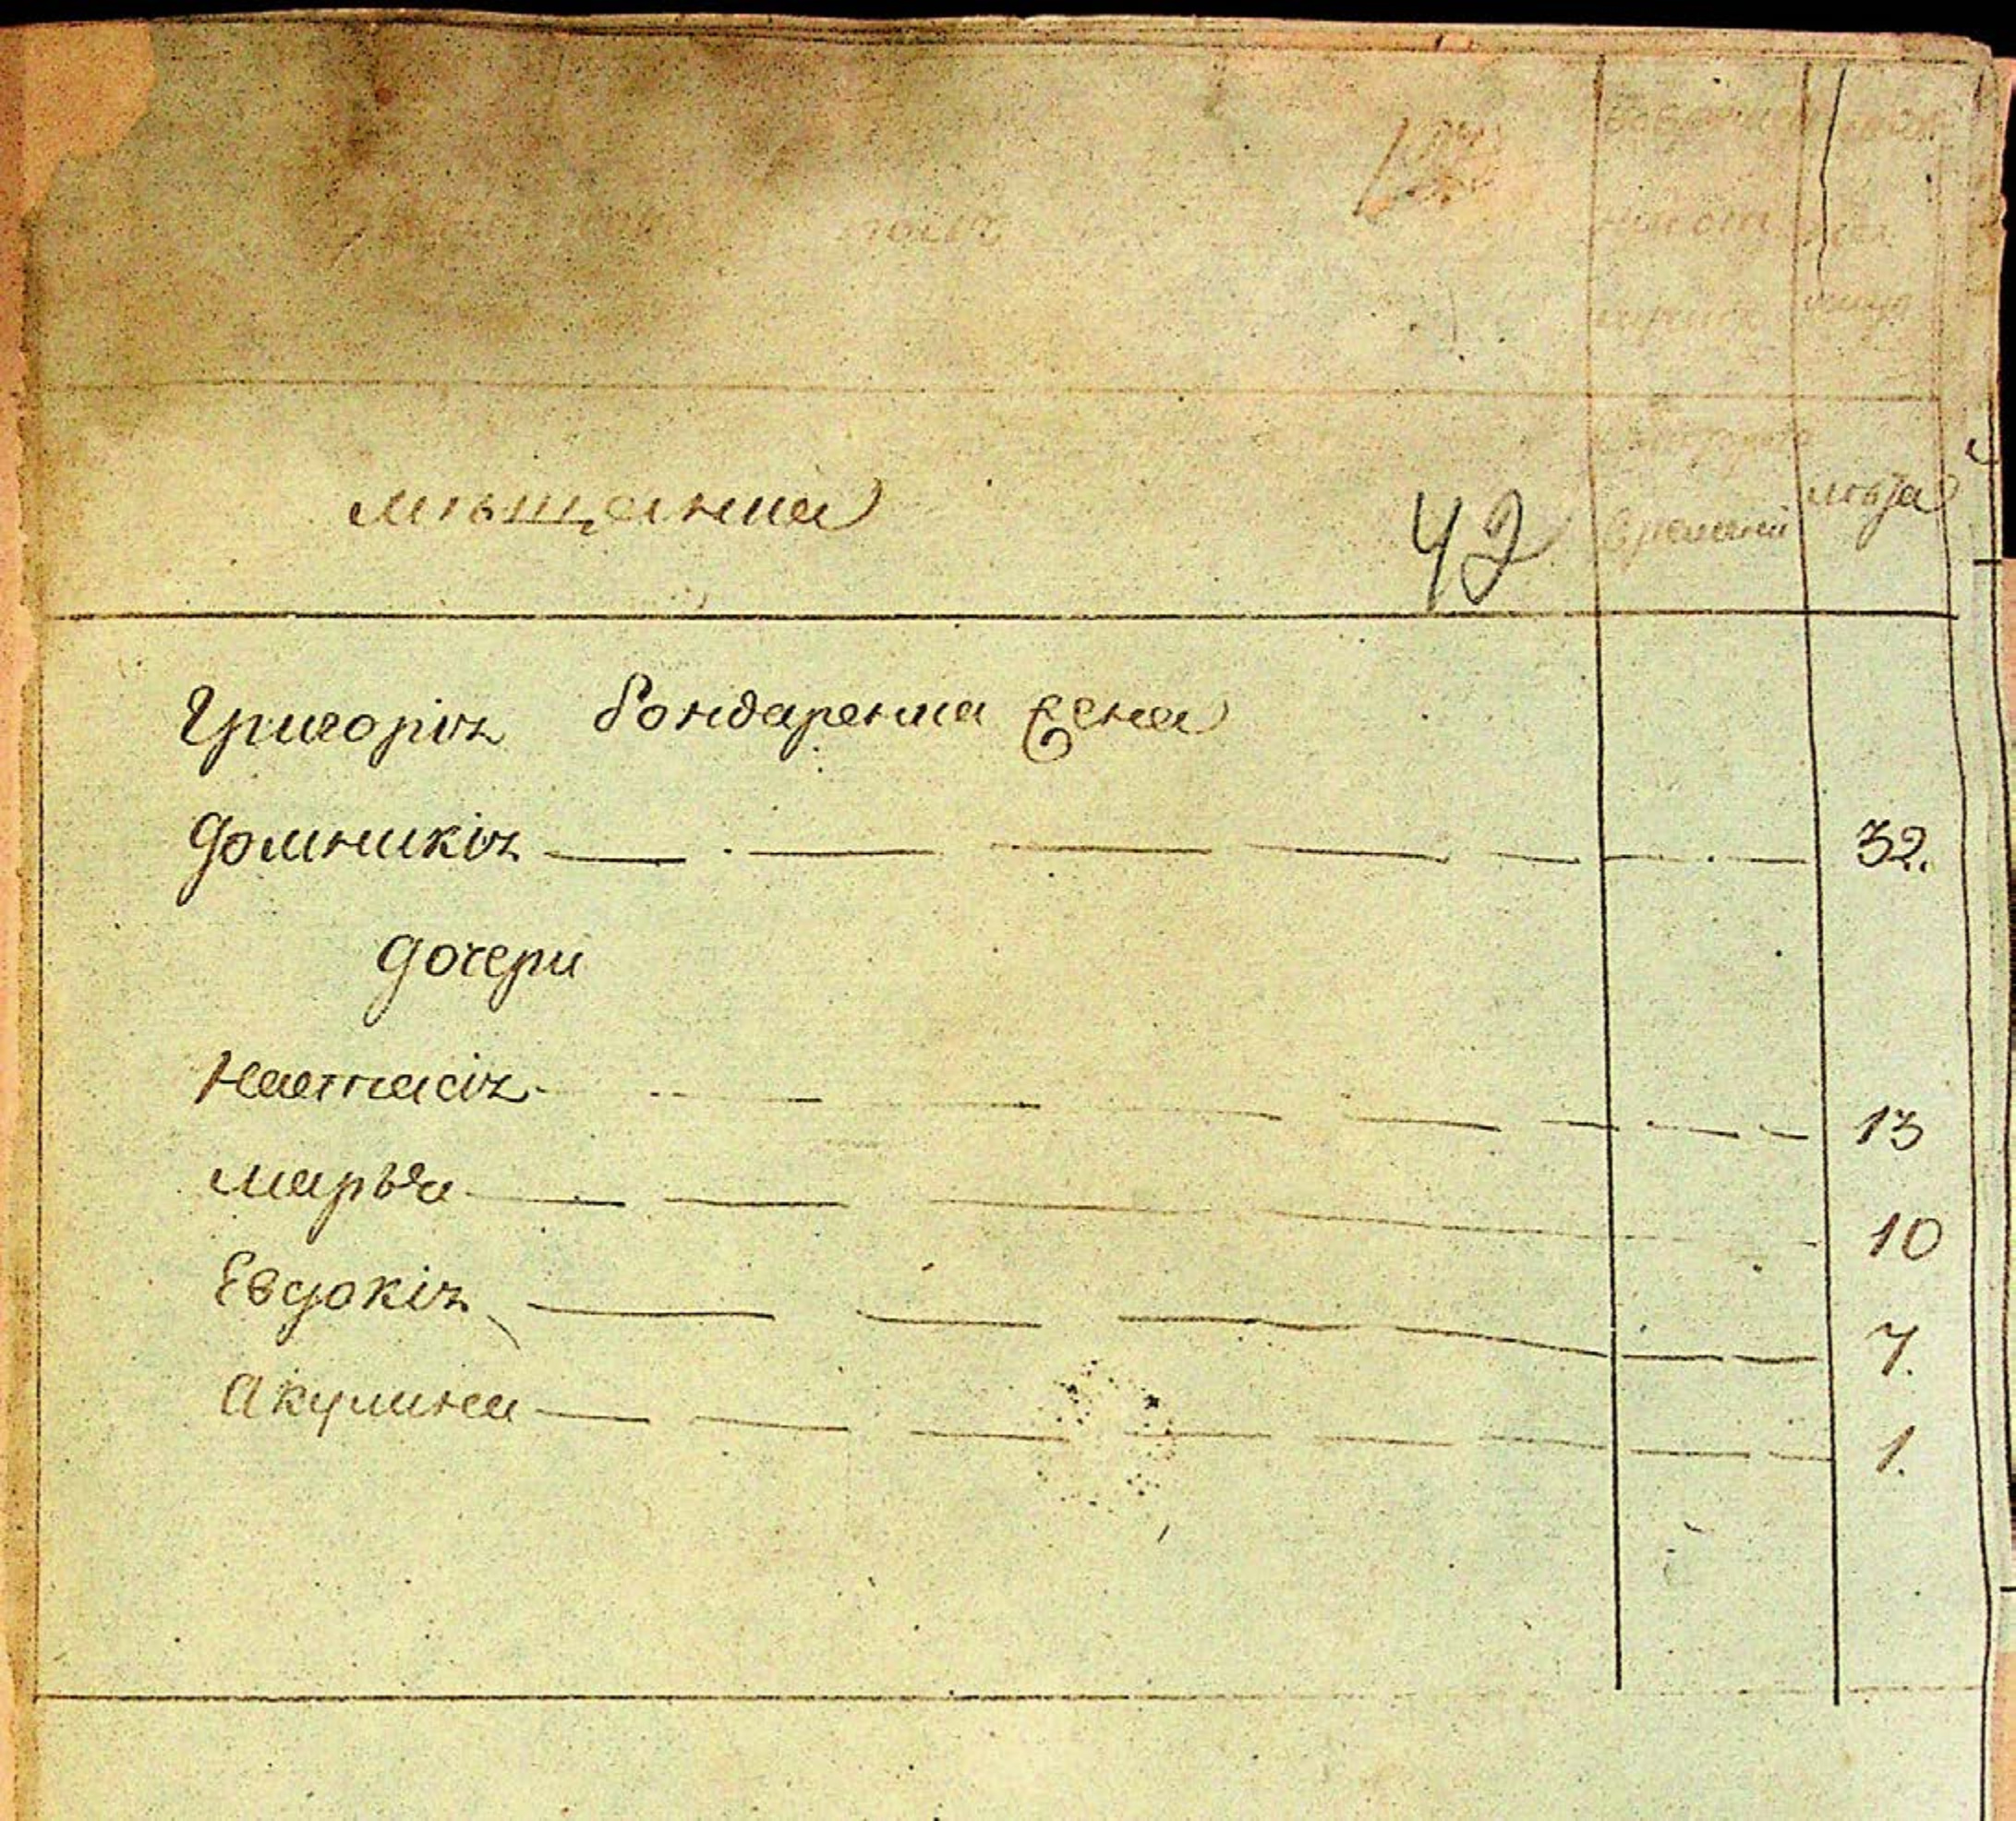 полъ
лѣта
мѣщанка
42
времянной
Григорія Бондаренка Жена
Домникія 32.
дочери
Настасія 13
Марья 10
Евдокія 7.
Акулина 1.